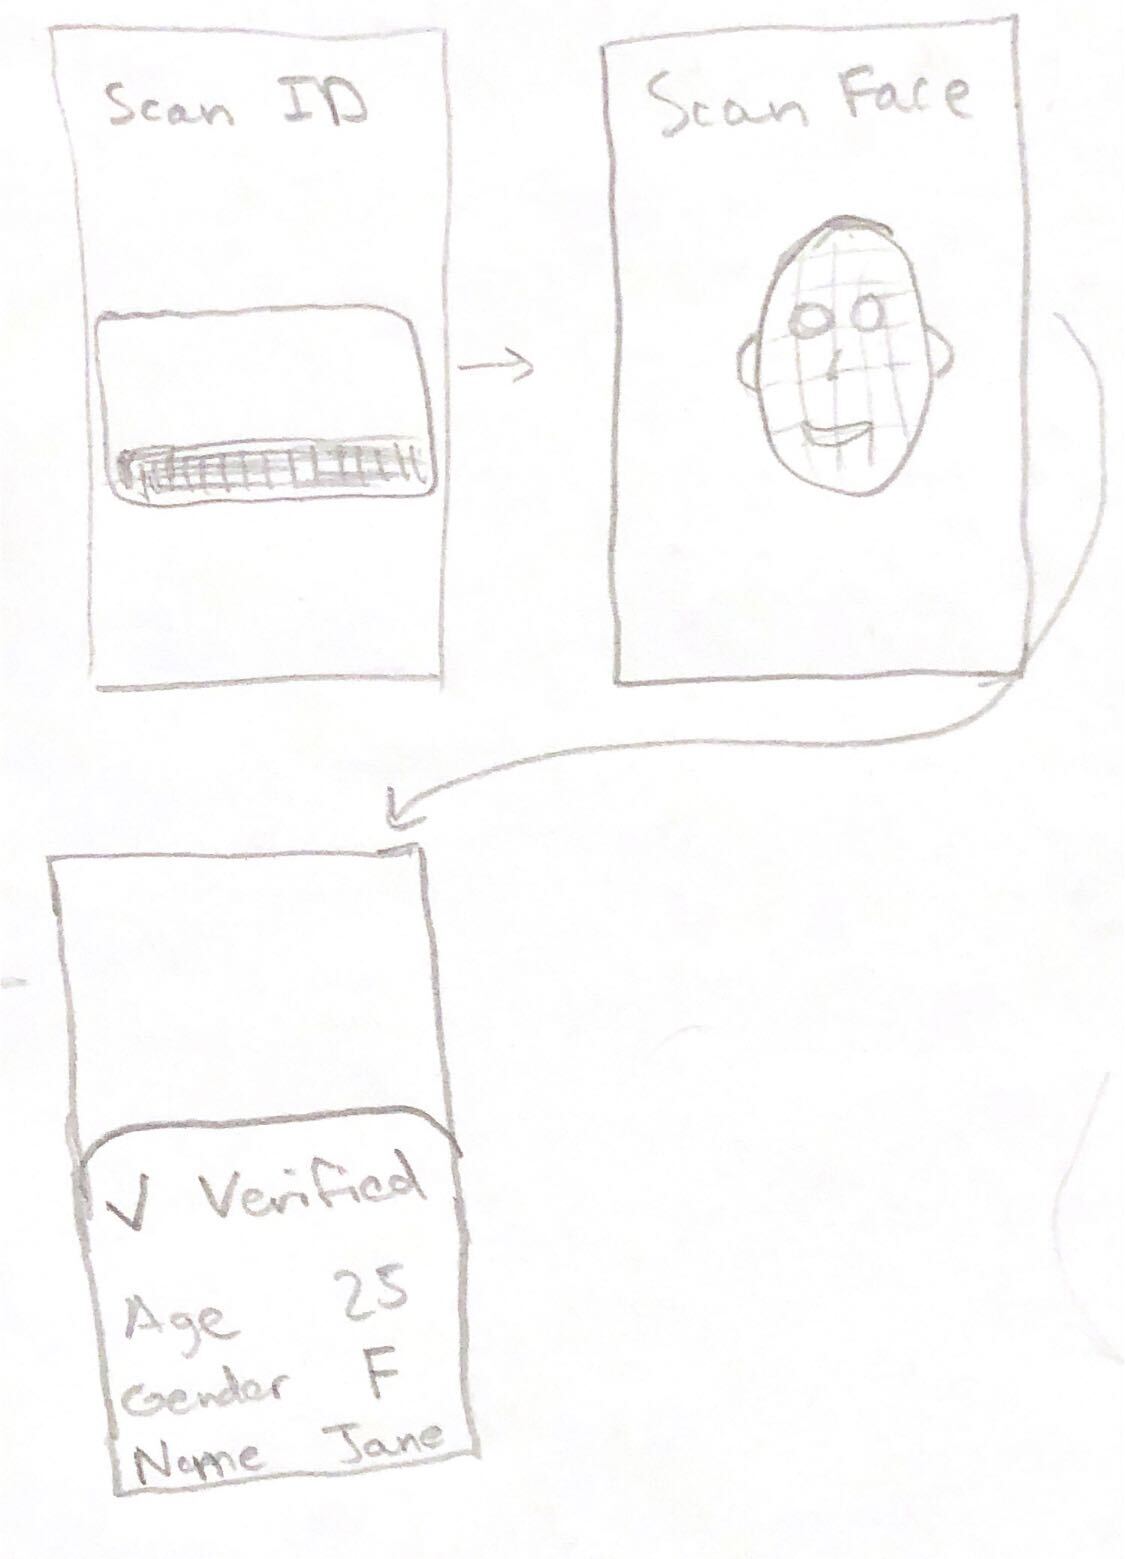 Scan ID
Scan Face
✓ Verified
Age 25
Gender F
Name Jane